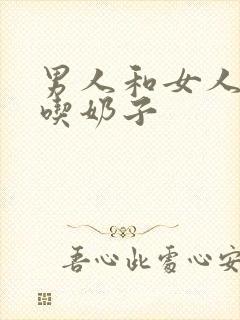 男人和女人
喫奶子
吾心此處心安